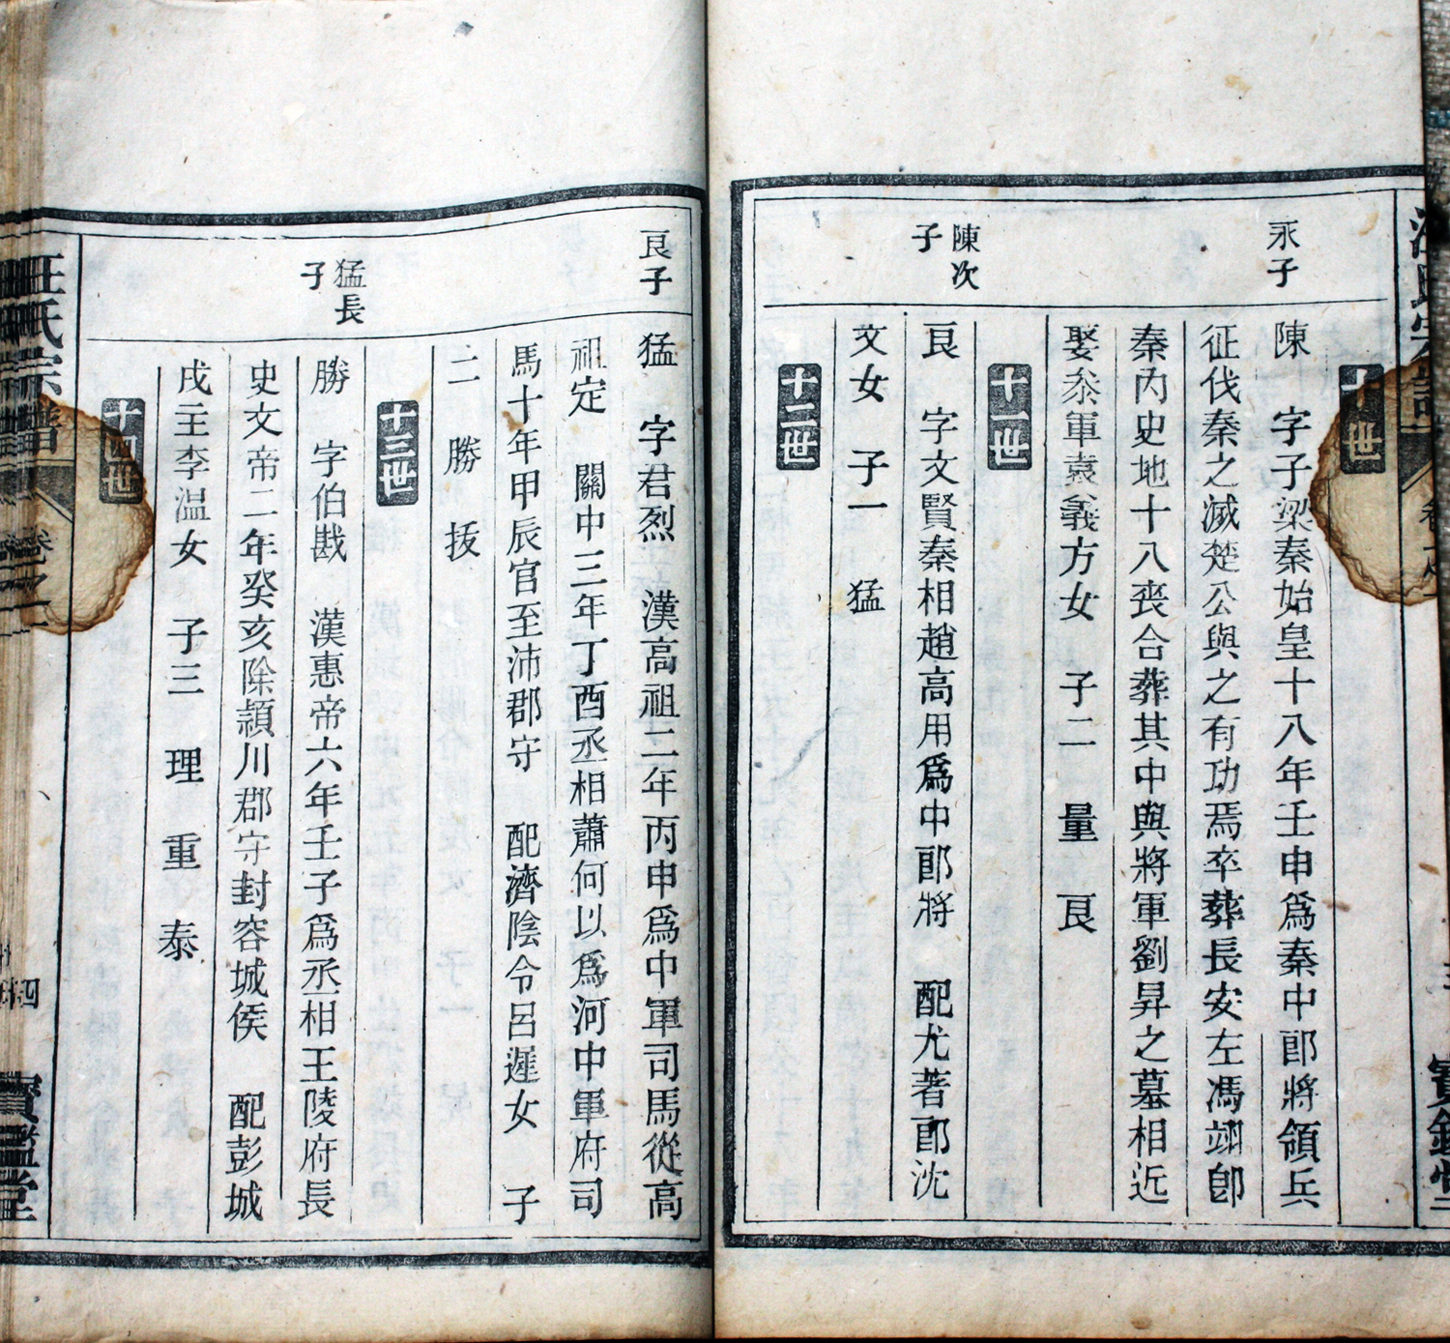 十世
永子
陳　字子梁秦始皇十八年壬申爲秦中郎將領兵
征伐秦之滅楚公與之有功焉卒葬長安左馮翊卽
秦內史地十八喪合葬其中與將軍劉昇之墓相近
娶叅軍袁義方女　子二　量　良
十一世
陳次子
良　字文賢秦相趙高用爲中郎將　配尤著郎沈
文女　子一　猛
十二世
良子
猛　字君烈　漢高祖二年丙申爲中軍司馬從高
祖定　關中三年丁酉丞相蕭何以爲河中軍府司
馬十年甲辰官至沛郡守　配濟陰令呂遲女　子
二　勝　㧞
十三世
猛長子
勝　字伯戡　漢惠帝六年壬子爲丞相王陵府長
史文帝二年癸亥除潁川郡守封容城侯　配彭城
戌主李温女　子三　理　重　泰
十四世
汪氏宗譜
卷之一
四
寶鑑堂